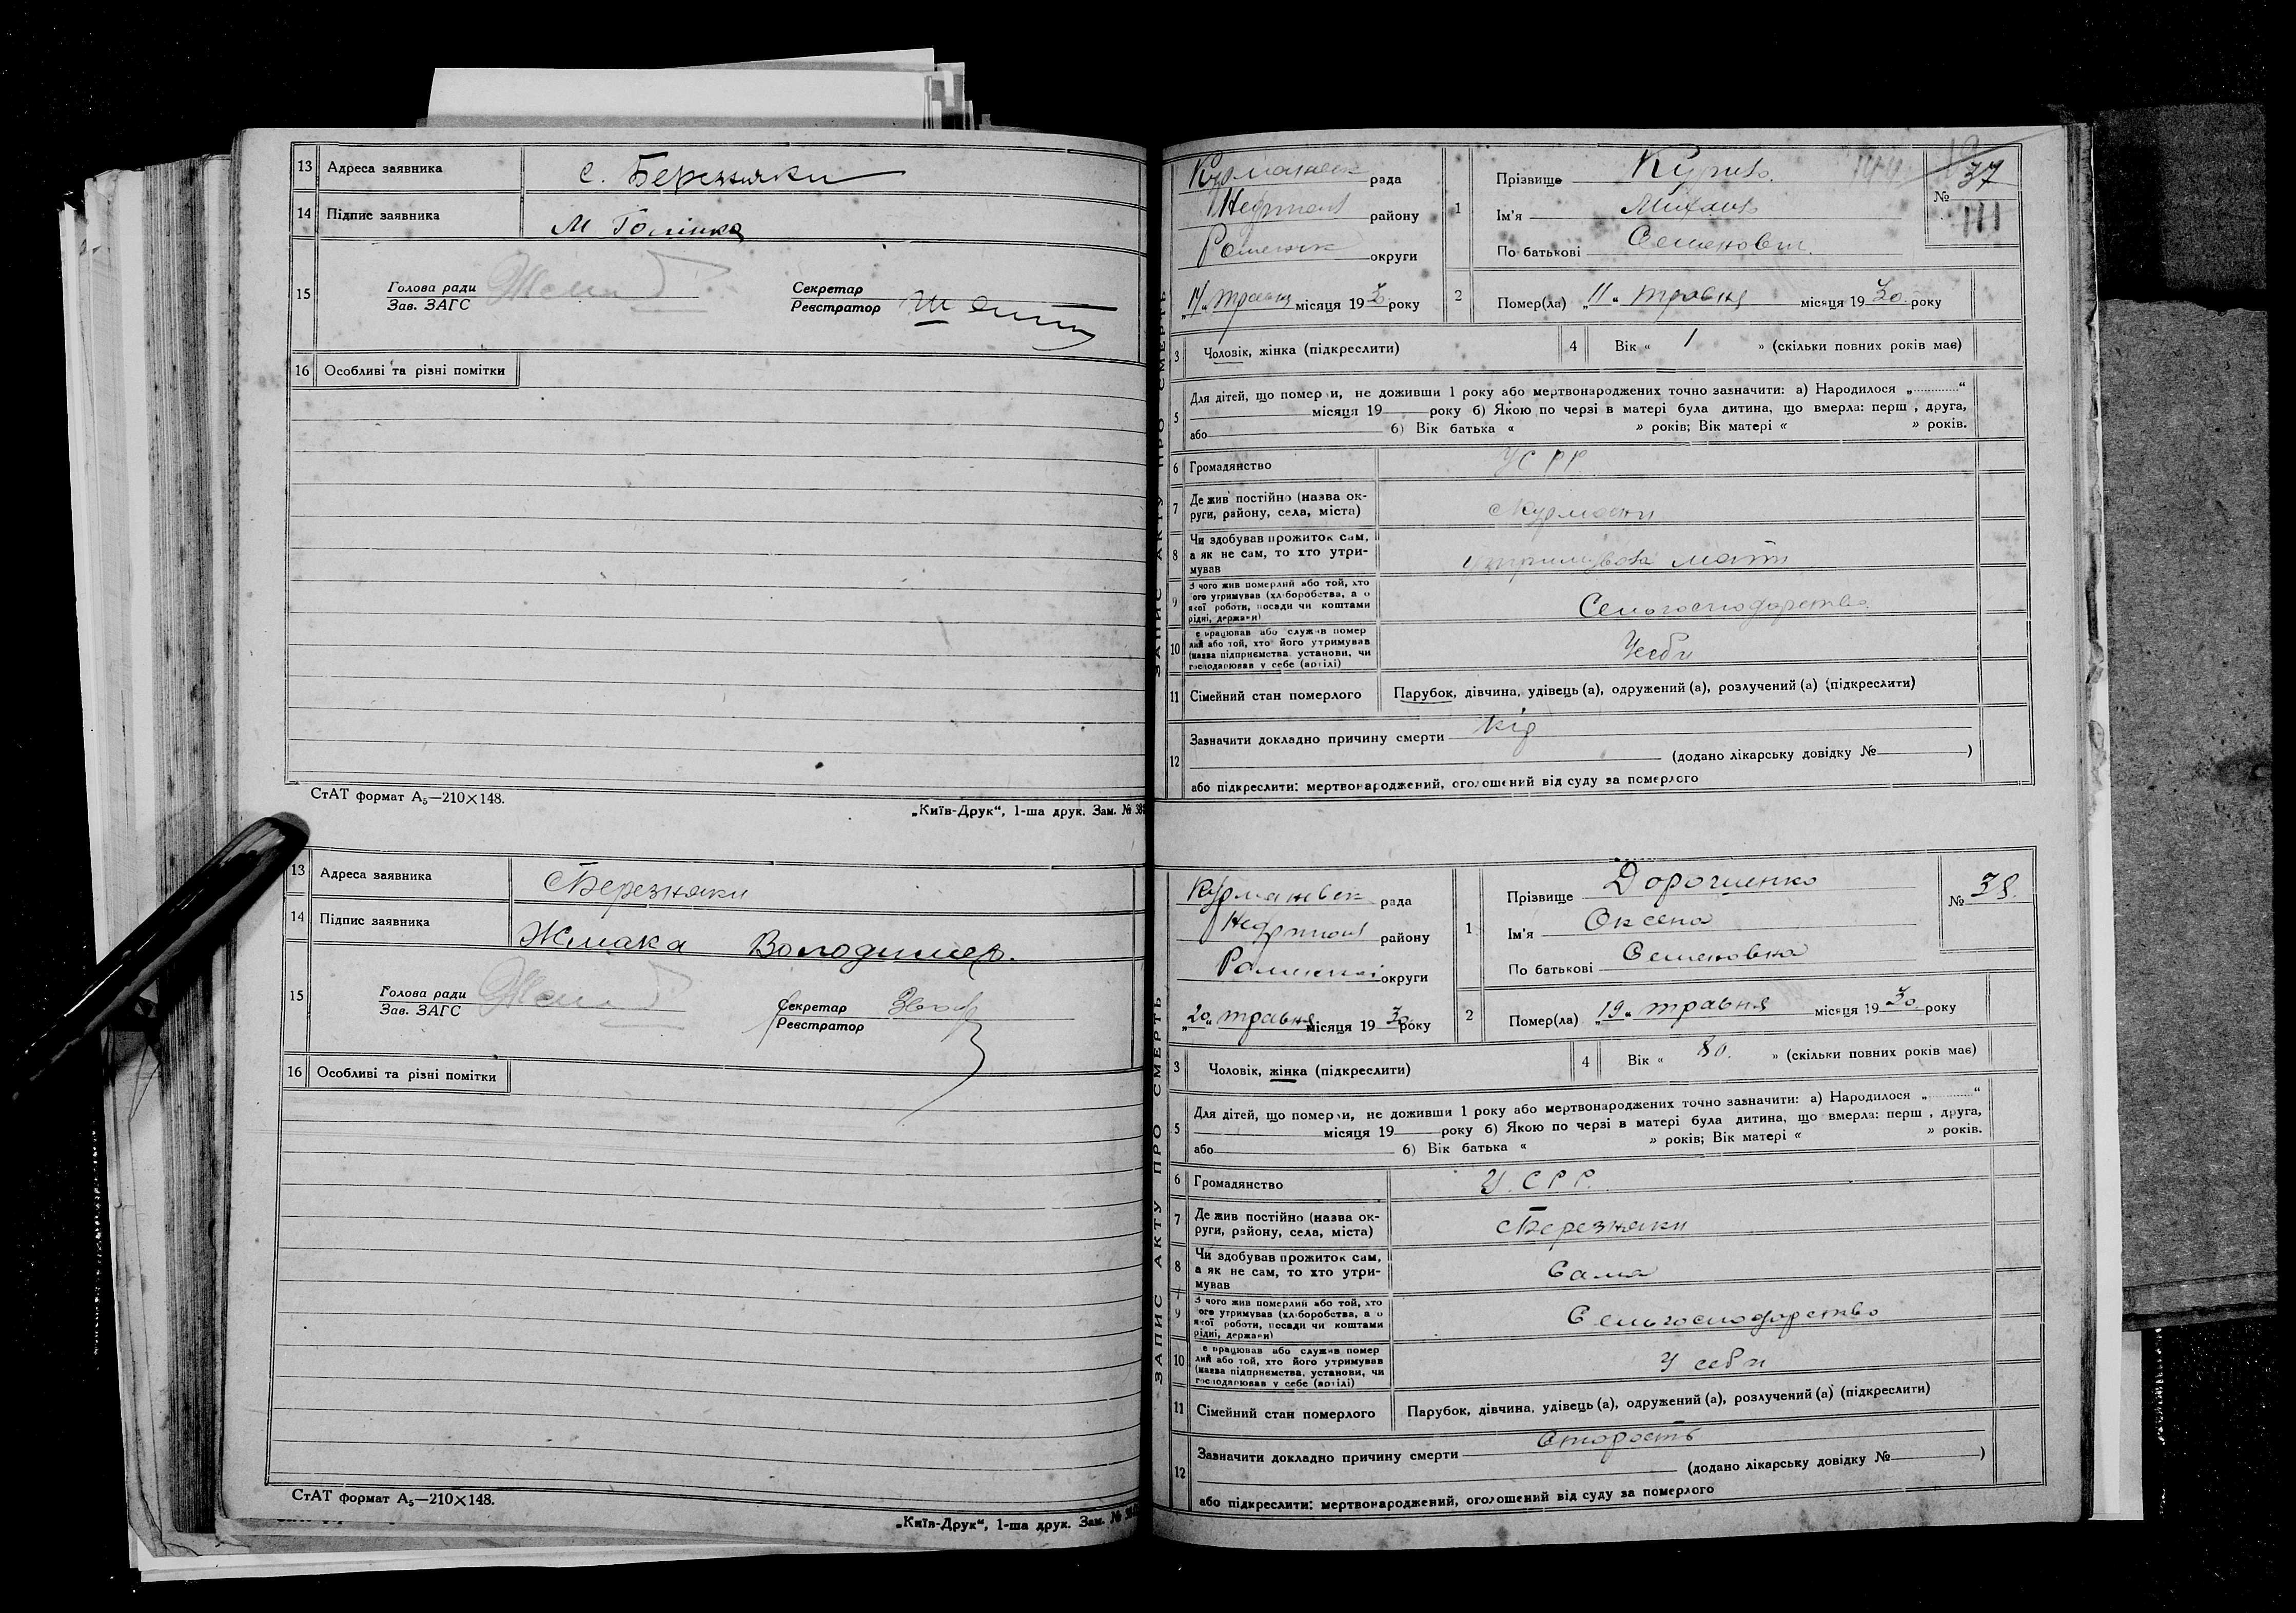 13 Адреса заявника с. Березняки
14 Підпис заявника М Голінка
15 Голова ради
Зав. ЗАГС
Секретар
Реєстратор
16 Особливі та різні помітки
СтАТ формат А5—210×148.
„Київ-Друк“, 1-ша друк. Зам. № 38
13 Адреса заявника с Березняки
14 Підпис заявника Жмака Володимер.
15 Голова ради
Зав. ЗАГС
Секретар
Реєстратор
16 Особливі та різні помітки
СтАТ формат А5—210×148.
„Київ-Друк“, 1-ша друк. Зам. № 38
ЗАПИС АКТУ ПРО СМЕРТЬ
Курманівськ рада
району
округи
„17“ травня місяця 1930 року
1 Прізвище
Ім'я Михаил
По батькові Семенович
№ 37
111
2 Помер(ла) „11“ травня місяця 1930 року
3 Чоловік, жінка (підкреслити)
4 Вік « 1 » (скільки повних років має)
5 Для дітей, що помер и, не доживши 1 року або мертвонароджених точно зазначити: а) Народилося „ “
місяця 19 року б) Якою по черзі в матері була дитина, що вмерла: перш , друга,
або 6) Вік батька « » років; Вік матері « » років.
6 Громадянство УСРР
7 Де жив постійно (назва ок-
руги, району, села, міста)
с Курмани
8 Чи здобував прожиток сам,
а як не сам, то хто утри-
мував
утримувала мати
9 З чого жив померлий або той, хто
ого утримував (хл боробства, а о
якої роботи, посади чи коштами
рідні, держави)
Сельгосподарство
10 е працював або служив помер
лий або той, хто його утримував
(назва підприємства, установи, чи
господарював у себе (артілі)
У себи
11 Сімейний стан померлого Парубок, дівчина, удівець (а), одружений (а), розлучений (а) (підкреслити)
12 Зазначити докладно причину смерти
(додано лікарську довідку № )
або підкреслити: мертвонароджений, оголошений від суду за померлого
ЗАПИС АКТУ ПРО СМЕРТЬ
Курманівськ рада
району
округи
„20“ травня місяця 1930 року
1 Прізвище Дорошенко
Ім'я Оксена
По батькові Семеновна
№ 38.
2 Помер(ла) „19“ травня місяця 1930 року
3 Чоловік, жінка (підкреслити)
4 Вік « 80. » (скільки повних років має)
5 Для дітей, що помер и, не доживши 1 року або мертвонароджених точно зазначити: а) Народилося „ “
місяця 19 року б) Якою по черзі в матері була дитина, що вмерла: перш , друга,
або 6) Вік батька « » років; Вік матері « » років.
6 Громадянство У.С.Р.Р.
7 Де жив постійно (назва ок-
руги, району, села, міста)
с Березняки
8 Чи здобував прожиток сам,
а як не сам, то хто утри-
мував
Сама
9 З чого жив померлий або той, хто
ого утримував (хл боробства, а о
якої роботи, посади чи коштами
рідні, держави)
Сельгосподарство
10 е працював або служив помер
лий або той, хто його утримував
(назва підприємства, установи, чи
господарював у себе (артілі)
У себи
11 Сімейний стан померлого Парубок, дівчина, удівець (а), одружений (а), розлучений (а) (підкреслити)
12 Зазначити докладно причину смерти Старость
(додано лікарську довідку № )
або підкреслити: мертвонароджений, оголошений від суду за померлого